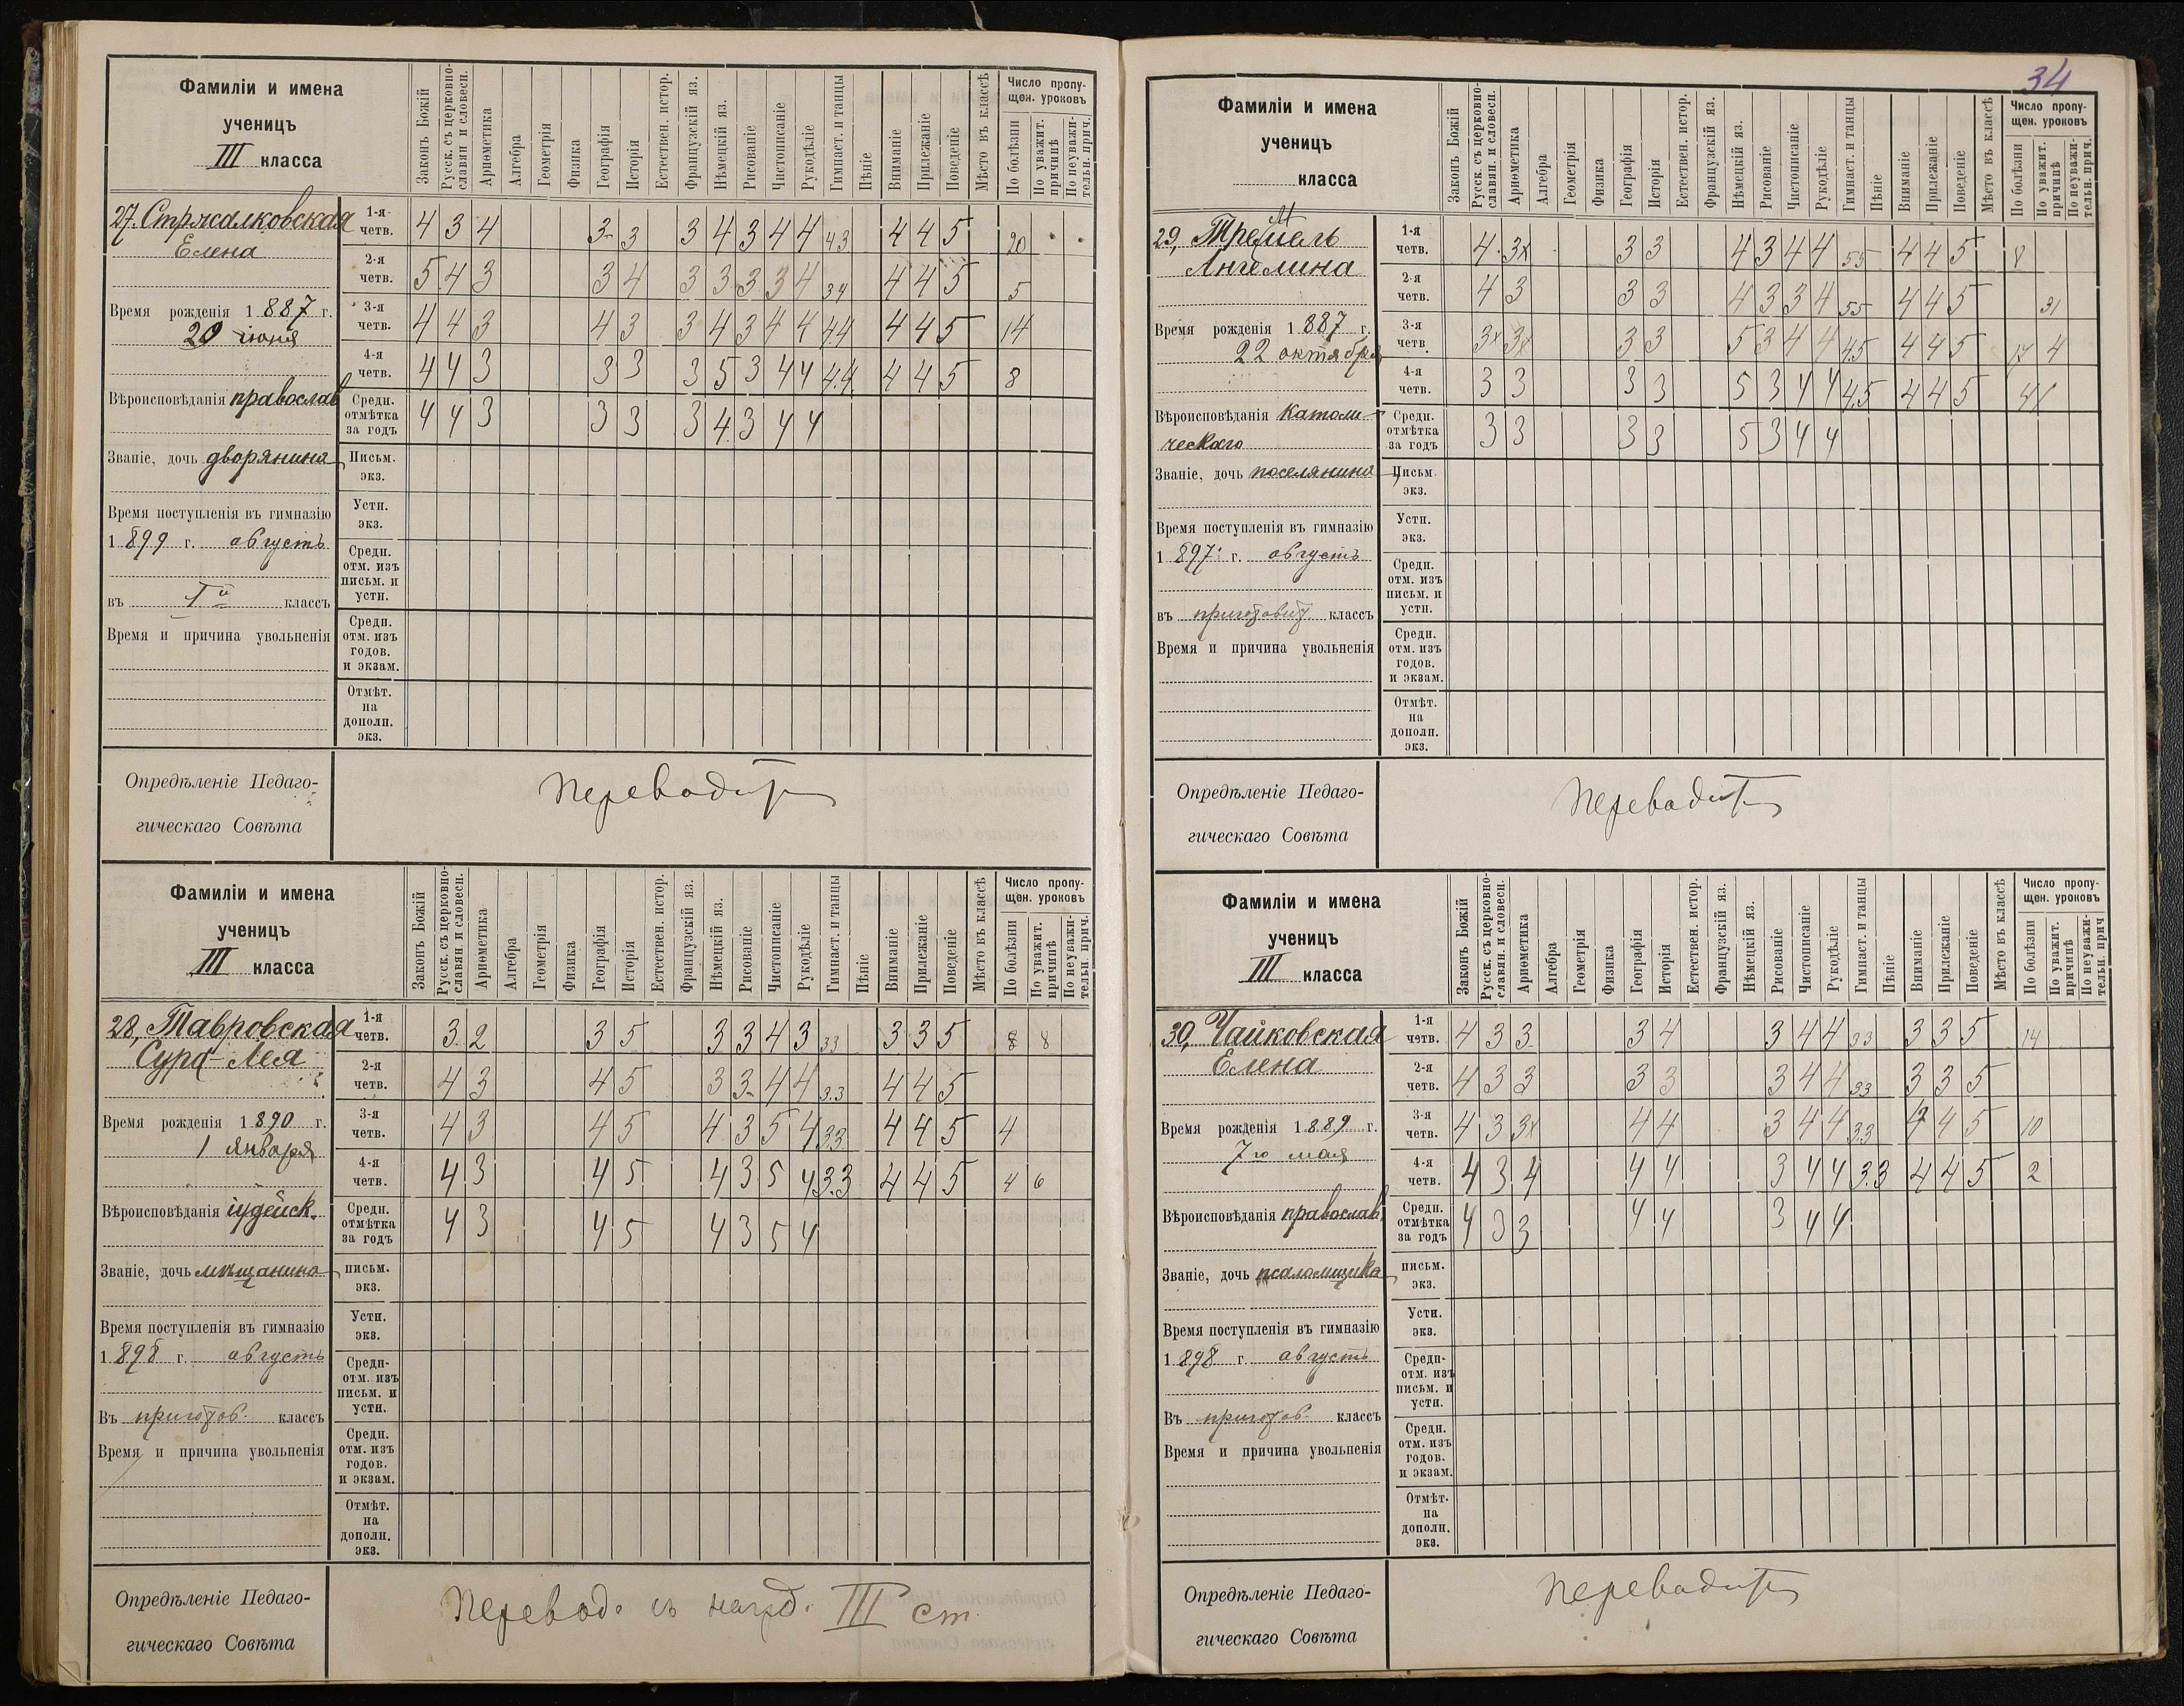 34
Фамиліи и имена
ученицъ
III класса
Законъ Божій
Русск. съ церковно-славян и словесн.
Ариѳметика
Алгебра
Геометрія
Физика
Географія
Исторія
Естествен. истор.
Французскій яз.
Нѣмецкій яз.
Рисованіе
Чистописаніе
Рукодѣліе
Гимнаст. и танцы
Пѣніе
Вниманіе
Прилежаніе
Поведеніе
Мѣсто въ классѣ
Число пропущен. уроковъ
По болѣзни
По уважит. причинѣ
По неуважительн. прич.
27. Стржалковская
Елена
Время рожденія 1887 г.
20 іюня
Вѣроисповѣданія православ
Званіе, дочь дворянина
Время поступленія въ гимназію
1899 г. августъ
въ Iй классъ
Время и причина увольненія
1-я четв. 4 3 4 3 3 3 4 3 4 4 4 3 4 4 5 20
2-я четв. 5 4 3 3 4 3 3 3 3 4 3 4 4 4 5 5
3-я четв. 4 4 3 4 3 3 4 3 4 4 4 4 4 4 5 14
4-я четв. 4 4 3 3 3 3 5 3 4 4 4.4 4 4 5 8
Средн. отмѣтка за годъ 4 4 3 3 3 3 4 3 4 4
Письм. экз.
Устн. экз.
Средн. отм. изъ письм. и устн.
Средн. отм. изъ годов. и экзам.
Отмѣт. на дополн. экз.
Опредѣленіе Педаго-
гическаго Совѣта
Переводится
Фамиліи и имена
ученицъ
III класса
Законъ Божій
Русск. съ церковно-славян. и словесн.
Ариѳметика
Алгебра
Геометрія
Физика
Географія
Исторія
Естествен. истор.
Французскій яз.
Нѣмецкій яз.
Рисованіе
Чистописаніе
Рукодѣліе
Гимнаст. и танцы
Пѣніе
Вниманіе
Прилежаніе
Поведеніе
Мѣсто въ классѣ
Число пропущен. уроковъ
По болѣзни
По уважит. причинѣ
По неуважительн. прич.
28, Тавровская
Сура-Лея
Время рожденія 1890 г.
1 января
Вѣроисповѣданія іудейск.
Званіе, дочь мѣщанина
Время поступленія въ гимназію
1898 г. августъ
Въ приготов. классъ
Время и причина увольненія
1-я четв. 3 2 3 5 3 3 4 3 3 3 3 3 5 8 8
2-я четв. 4 3 4 5 3 3 4 4 3.3 4 4 5
3-я четв. 4 3 4 5 4 3 5 4 3 3 4 4 5 4
4-я четв. 4 3 4 5 4 3 5 4 3.3 4 4 5 4 6
Средн. отмѣтка за годъ 4 3 4 5 4 3 5 4
письм. экз.
Устн. экз.
Средн- отм. изъ письм. и устн.
Средн. отм. изъ годов. и экзам.
Отмѣт. на дополн. экз.
Опредѣленіе Педаго-
гическаго Совѣта
Перевод. съ наград. III ст.
Фамиліи и имена
ученицъ
класса
Законъ Божій
Русск. съ церковно-славян. и словесн.
Ариѳметика
Алгебра
Геометрія
Физика
Географія
Исторія
Естествен. истор.
Французскій яз.
Нѣмецкій яз.
Рисованіе
Чистописаніе
Рукодѣліе
Гимнаст. и танцы
Пѣніе
Вниманіе
Прилежаніе
Поведеніе
Мѣсто въ классѣ
Число пропущен. уроковъ
По болѣзни
По уважит. причинѣ
По неуважительн. прич.
29,
Ангелина
Время рожденія 1887 г.
22 октября
Вѣроисповѣданія католи-
ческаго
Званіе, дочь поселянина
Время поступленія въ гимназію
1897 г. августъ
въ приготовит. классъ
Время и причина увольненія
1-я четв. 4 3х 3 3 4 3 4 4 5 5 4 4 5 8
2-я четв. 4 3 3 3 4 3 3 4 5 5 4 4 5 21
3-я четв 3х 3х 3 3 5 3 4 4 4 5 4 4 5 17 4
4-я четв. 3 3 3 3 5 3 4 4 4.5 4 4 5
Средн. отмѣтка за годъ 3 3 3 3 5 3 4 4
Письм. экз.
Устн. экз.
Средн. отм. изъ письм. и устн.
Средн. отм. изъ годов. и экзам.
Отмѣт. на дополн. экз.
Опредѣленіе Педаго-
гическаго Совѣта
Переводится
Фамиліи и имена
ученицъ
III класса
Законъ Божій
Русск. съ церковно-славян. и словесн.
Ариѳметика
Алгебра
Геометрія
Физика
Географія
Исторія
Естествен. истор.
Французскій яз.
Нѣмецкій яз.
Рисованіе
Чистописаніе
Рукодѣліе
Гимнаст. и танцы
Пѣніе
Вниманіе
Прилежаніе
Поведеніе
Мѣсто въ классѣ
Число пропущен. уроковъ
По болѣзни
По уважит. причинѣ
По неуважительн. прич
30, Чайковская
Елена
Время рожденія 1889 г.
7го мая
Вѣроисповѣданія православ
Званіе, дочь псаломщика
Время поступленія въ гимназію
1898 г. августъ
Въ приготов. классъ
Время и причина увольненія
1-я четв. 4 3 3 3 4 3 4 4 3 3 3 3 5 14
2-я четв. 4 3 3 3 3 3 4 4 3 3 3 3 5
3-я четв. 4 3 3х 4 4 3 4 4 3 3 4 4 5 10
4-я четв. 4 3 4 4 4 3 4 4 3.3 4 4 5 2
Средн. отмѣтка за годъ 4 3 3 4 4 3 4 4
письм. экз.
Устн. экз.
Средн- отм. изъ письм. и устн.
Средн. отм. изъ годов. и экзам.
Отмѣт. на дополн. экз.
Опредѣленіе Педаго-
гическаго Совѣта
Переводится